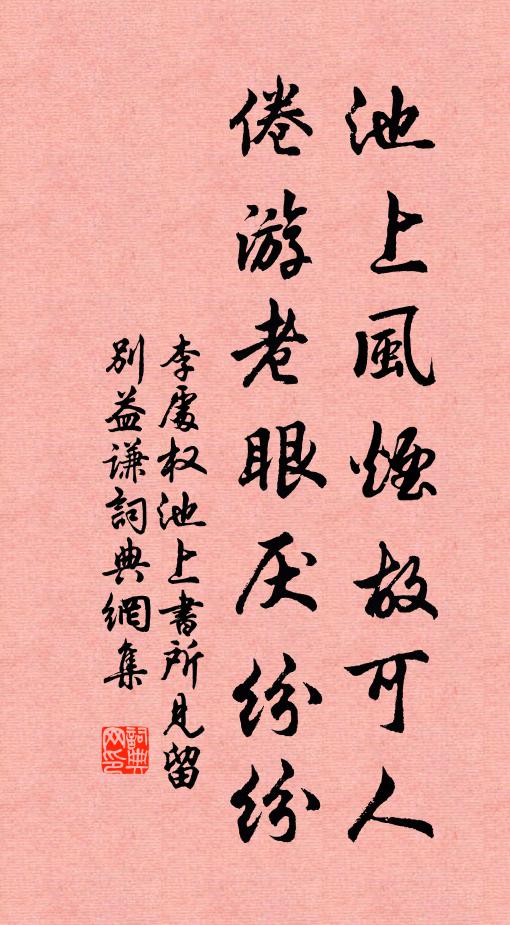 池上風煙故可人
倦游老眼厌紛紛
李處权池上書所見留
别益谦詞典網集
詞典网印